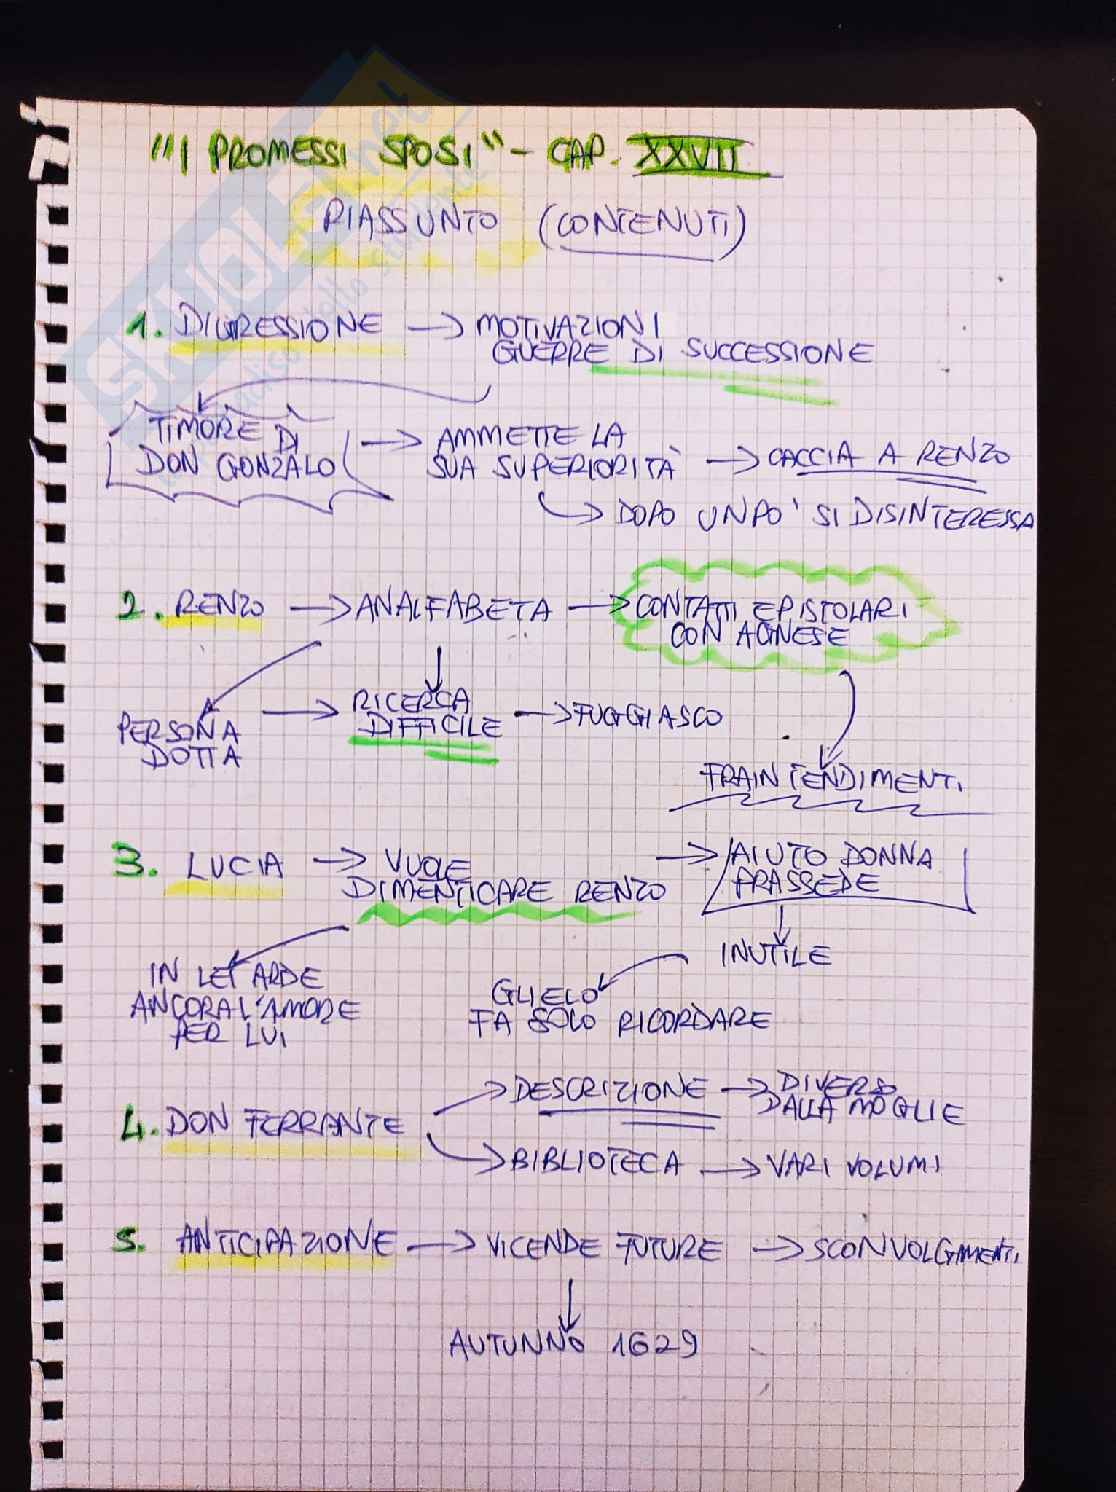 "I PROMESSI SPOSI" - CAP. XXVII
RIASSUNTO (CONTENUTI)
1. DIGRESSIONE → MOTIVAZIONI
GUERRE DI SUCCESSIONE
TIMORE DI
DON GONZALO
→ AMMETTE LA
SUA SUPERIORITÀ
→ CACCIA A RENZO
→ DOPO UN PO' SI DISINTERESSA
2. RENZO → ANALFABETA → CONTATTI EPISTOLARI
CON AGNESE
PERSONA
DOTTA
→ RICERCA
DIFFICILE
→ FUGGIASCO
FRAINTENDIMENTI
3. LUCIA → VUOLE
DIMENTICARE RENZO
→ AIUTO DONNA
PRASSEDE
INUTILE
IN LEI ARDE
ANCORA L'AMORE
PER LUI
GLIELO
FA SOLO RICORDARE
4. DON FERRANTE
→ DESCRIZIONE → DIVERSO
DALLA MOGLIE
→ BIBLIOTECA → VARI VOLUMI
5. ANTICIPAZIONE → VICENDE FUTURE → SCONVOLGIMENTI
AUTUNNO 1629
SKUOLA.net